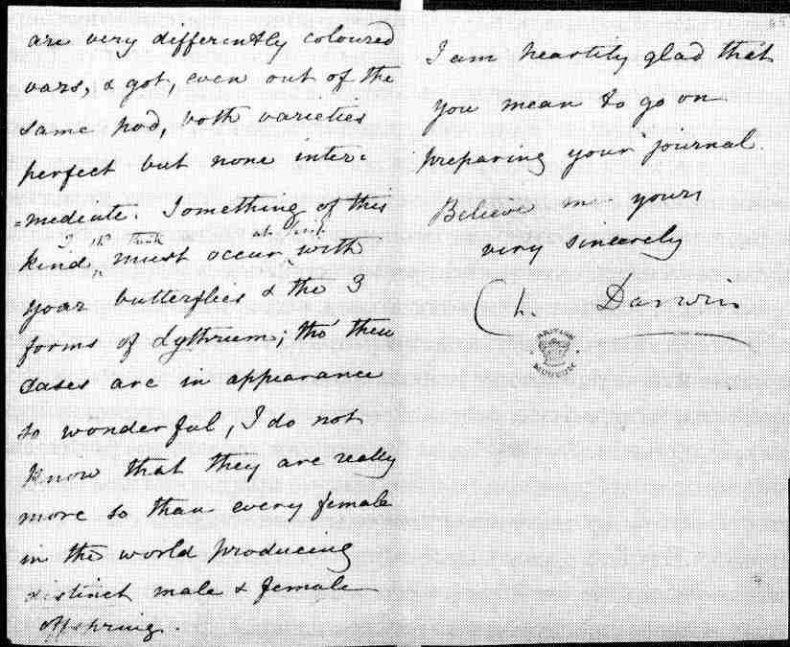 are very differently coloured
vars, & got, even out of the
same pod, both varieties
perfect but none inter=
=mediate. Something of this
I shd think at least
kind, must occur with
your butterflies & the 3
forms of Lythrum; tho' these
cases are in appearance
so wonderful, I do not
know that they are really
more so than every female
in the world producing
distinct male & female
offspring.
I am heartily glad that
you mean to go on
preparing your journal.
Believe me yours
very sincerely
Ch. Darwin
BRITISH
MUSEUM